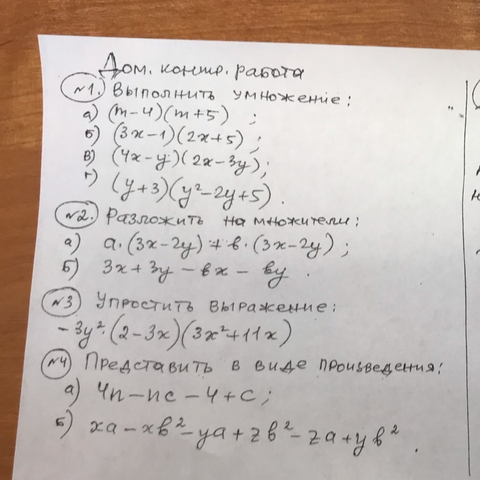 Дом. контр. работа
№1. Выполнить умножение:
а) (m-4)(m+5) ;
б) (3x-1)(2x+5) ;
в) (4x-y)(2x-3y);
г) (y+3)(y²-2y+5).
№2. Разложить на множители:
а) a·(3x-2y)+b·(3x-2y);
б) 3x+3y-bx-by.
№3 Упростить выражение:
-3y²·(2-3x)(3x²+11x)
№4 Представить в виде произведения:
а) 4n-nc-4+c;
б) xa-xb²-ya+zb²-za+yb².